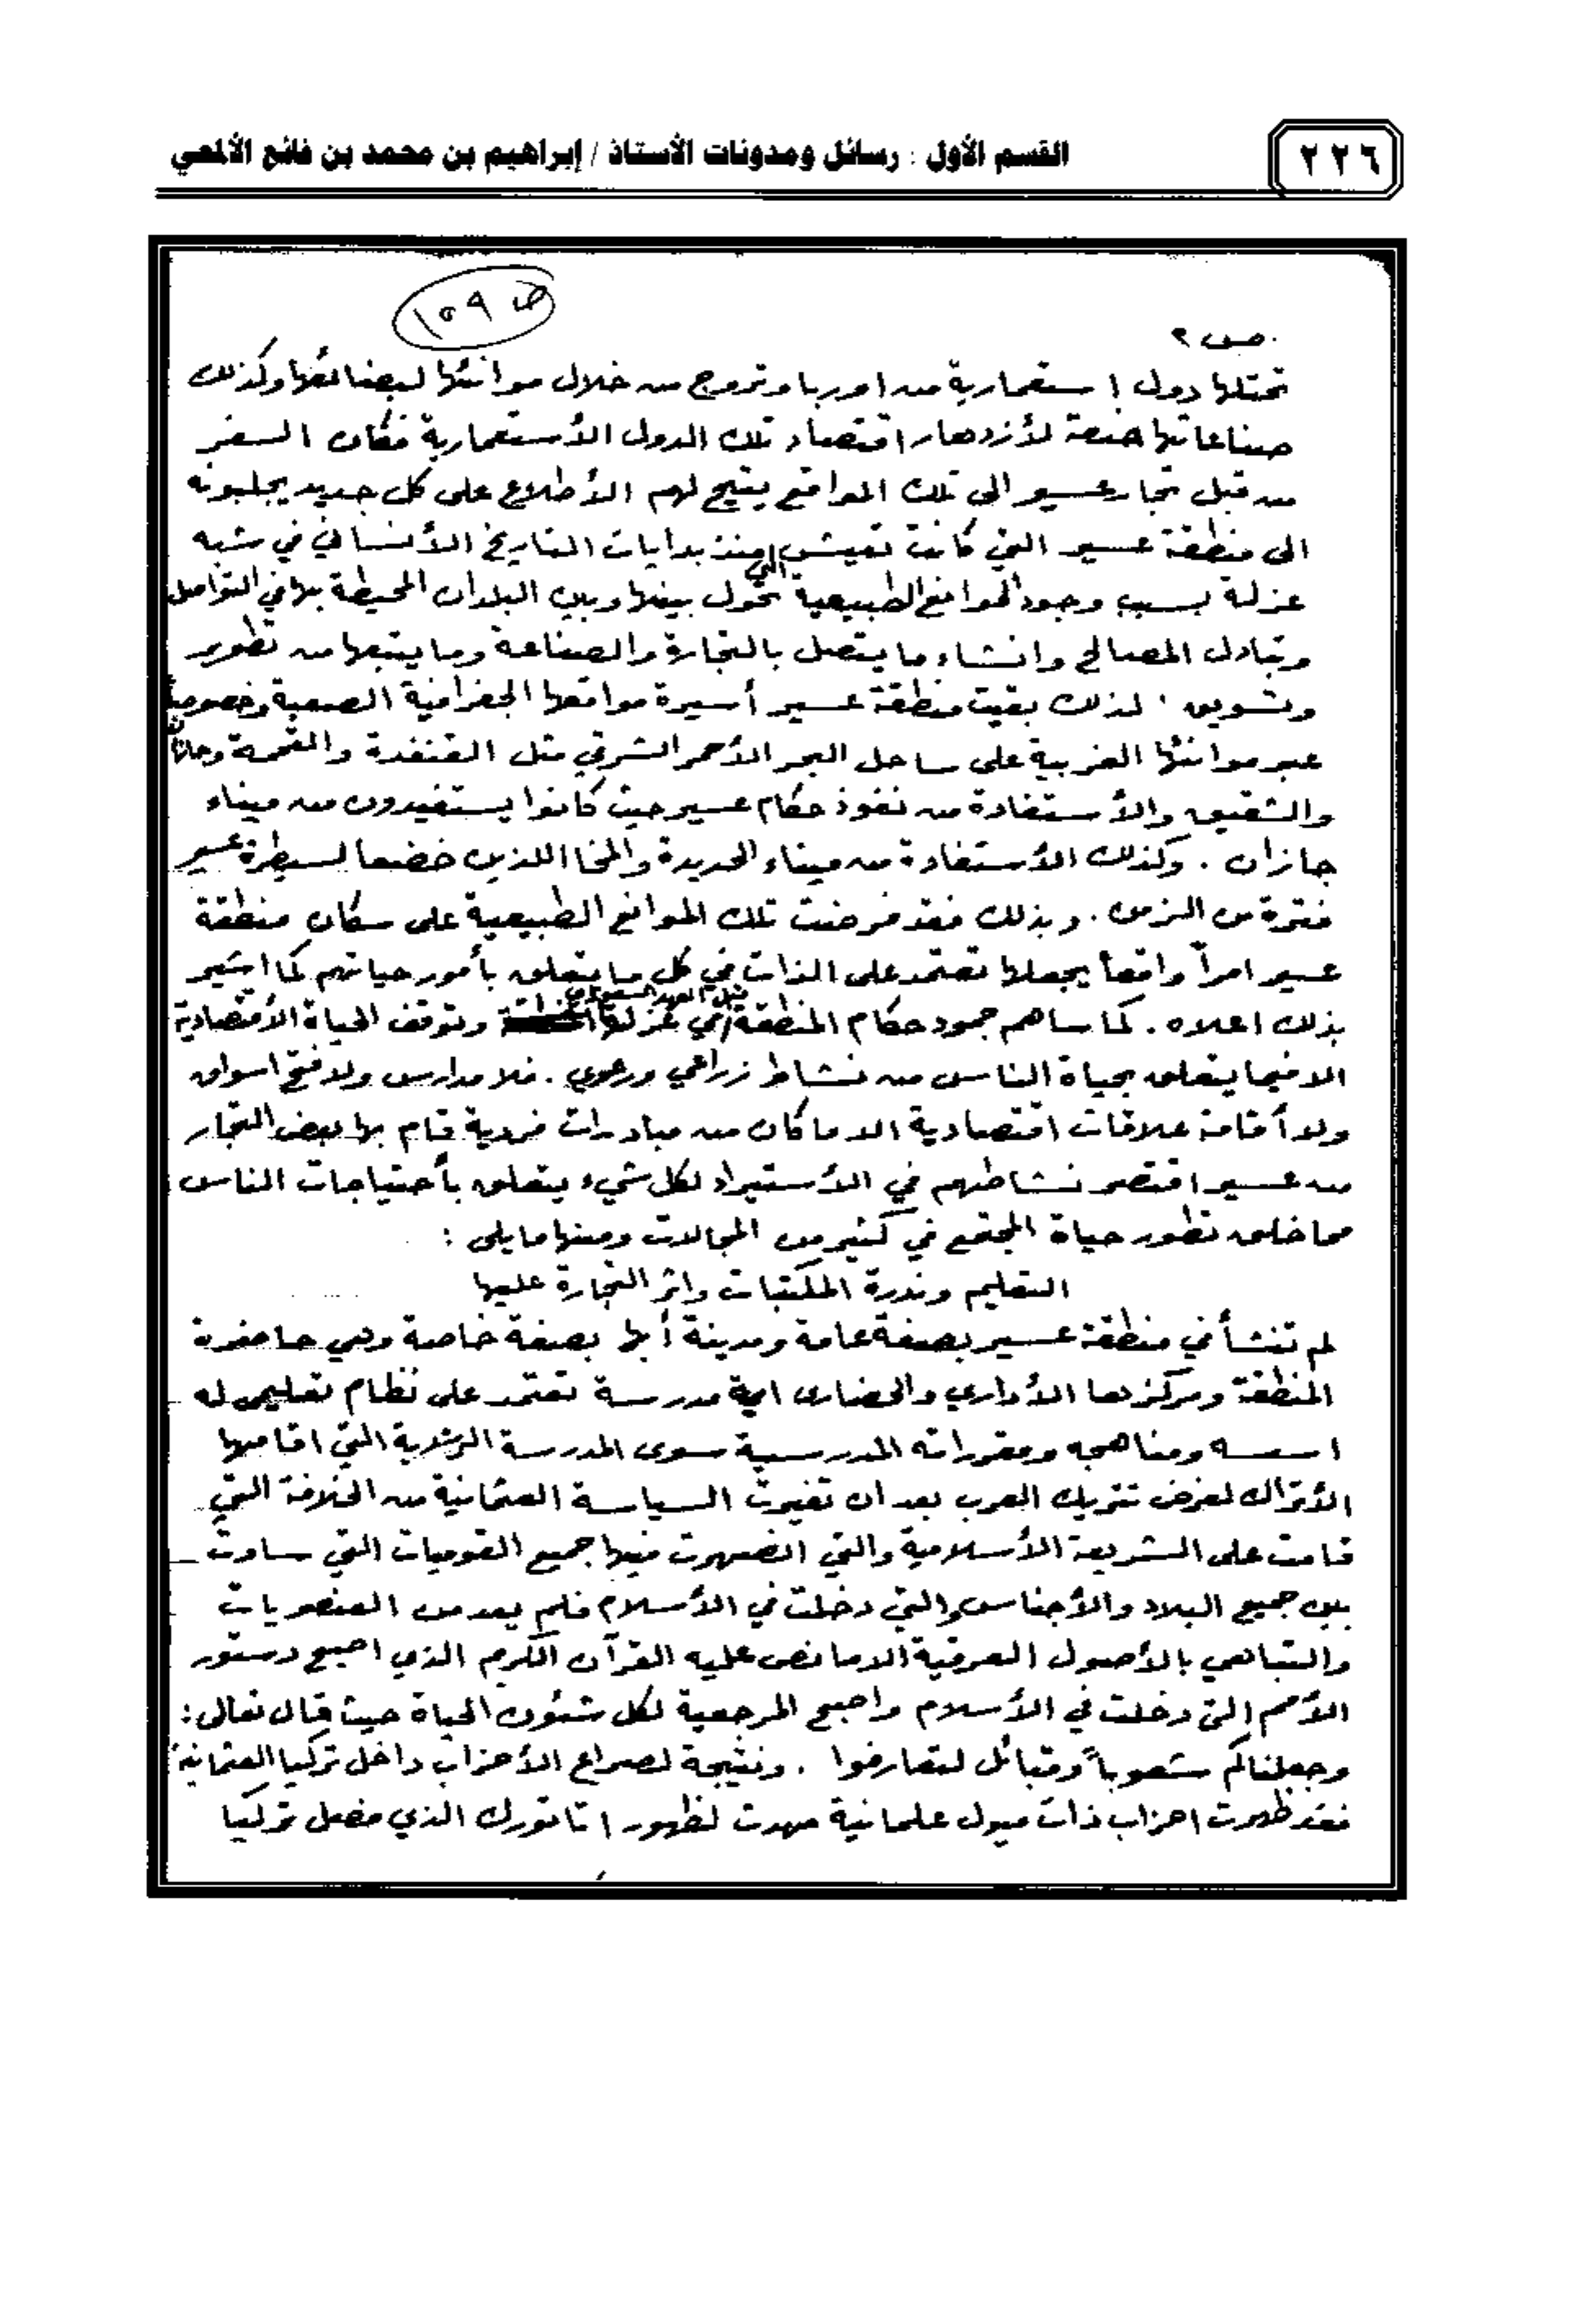 ٢٢٦
القسم الأول : رسائل ومدونات الأستاذ / إبراهيم بن محمد بن فائع الألمعي
ص ١٥٩
ص ٢
تحتلها دول استعمارية من اوربا وتروج من خلال موانئها لبضائعها وكذلك
صناعاتها خدمة لأزدهار اقتصاد تلك الدول الأستعمارية فكان السفر
من قبل تجار عسير الى تلك المواقع يتيح لهم الأطلاع على كل جديد يجلبونه
الى منطقة عسير التي كانت تعيش منذ بدايات التاريخ الأنساني في شبه
عزلة بسبب وجود الموانع الطبيعية التي تحول بينها وبين البلدان المحيطة بها في التواصل
وتبادل المصالح وانشاء ما يتصل بالتجارة والصناعة وما يتبعها من تطوير
وتسويق . لذلك بقيت منطقة عسير أسيرة مواقعها الجغرافية الصعبة وخصوصاً
عبر موانئها الغربية على ساحل البحر الأحمر الشرقي مثل القنفدة والقحمة وحالياً
والشقيق والأستفادة من نفوذ حكام عسير حيث كانوا يستفيدون من ميناء
جازان . وكذلك الأستفادة من ميناء الحديدة والمخا اللذين خضعا لسيطرة عسير
فترة من الزمن . وبذلك فقد فرضت تلك الموانع الطبيعية على سكان منطقة
عسير امراً واقعاً يجعلها تعتمد على الذات في كل ما يتعلق بأمور حياتهم كما اشير
بذلك اعلاه . كما ساهم جمود حكام المنطقة قبل العهد السعودي في عزلتها وتوقف الحياة الأقتصادية
الا فيما يتعلق بحياة الناس من نشاط زراعي ورعوي . فلا مدارس ولا فتح اسواق
ولا أقامة علاقات اقتصادية الا ما كان من مبادرات فردية قام بها بعض التجار
من عسير اقتصر نشاطهم في الأستيراد لكل شيء يتعلق بأحتياجات الناس
مما خلق تطور حياة المجتمع في كثير من المجالات ومنها مايلي :
التعليم وندرة المكتبات واثر التجارة عليها
لم تنشأ في منطقة عسير بصفة عامة ومدينة أبها بصفة خاصة وهي حاضرة
المنطقة ومركزها الأداري والحضارى اية مدرسة تعتمد على نظام تعليمي له
اسسه ومناهجه ومقرراته المدرسية سوى المدرسة الرشدية التي اقامها
الأتراك لغرض تتريك العرب بعد ان تغيرت السياسة العثمانية من الخلافة التي
قامت على الشريعة الأسلامية والتي انصهرت فيها جميع القوميات التي ساوت
بين جميع البلاد والأجناس والتي دخلت في الأسلام فلم يعد من العنصريات
والتباهي بالأصول العرقية الا ما نص عليه القرآن الكريم الذي اصبح دستور
الأمم التي دخلت في الأسلام واصبح المرجعية لكل شئون الحياة حيث قال تعالى:
وجعلناكم شعوباً وقبائل لتعارفوا . ونتيجة لصراع الأحزاب داخل تركيا العثمانية
فقد ظهرت احزاب ذات ميول علمانية مهدت لظهور اتاتورك الذي فصل تركيا